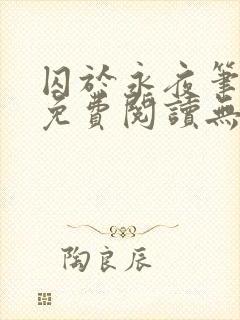 囚於永夜筆
免費閱讀無
陶良辰